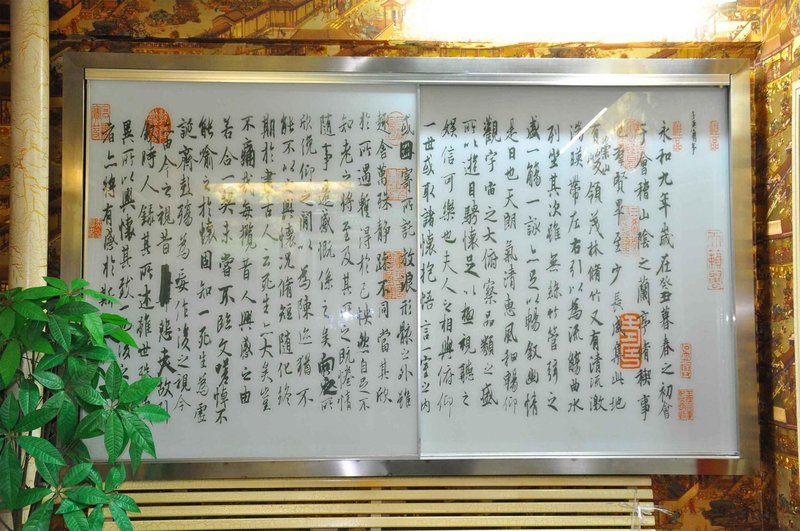 永和九年歲在癸丑暮春之初會
于會稽山陰之蘭亭脩禊事
也羣賢畢至少長咸集此地
有崇山峻領茂林脩竹又有清流激
湍暎帶左右引以為流觴曲水
列坐其次雖無絲竹管弦之
盛一觴一詠亦足以暢敘幽情
是日也天朗氣清惠風和暢仰
觀宇宙之大俯察品類之盛
所以遊目騁懷足以極視聽之
娛信可樂也夫人之相與俯仰
一世或取諸懷抱悟言一室之內
或因寄所託放浪形骸之外雖
趣舍萬殊靜躁不同當其欣
於所遇蹔得於己怏然自足不
知老之將至及其所之既惓情
隨事遷感慨係之矣向之所
欣俛仰之間以為陳迹猶不
能不以之興懷況脩短隨化終
期於盡古人云死生亦大矣豈
不痛哉每攬昔人興感之由
若合一契未嘗不臨文嗟悼不
能喻之於懷固知一死生為虛
誕齊彭殤為妄作後之視今
亦由今之視昔悲夫故
敘時人錄其所述雖世殊
異所以興懷其致一也後之
者亦將有感於斯